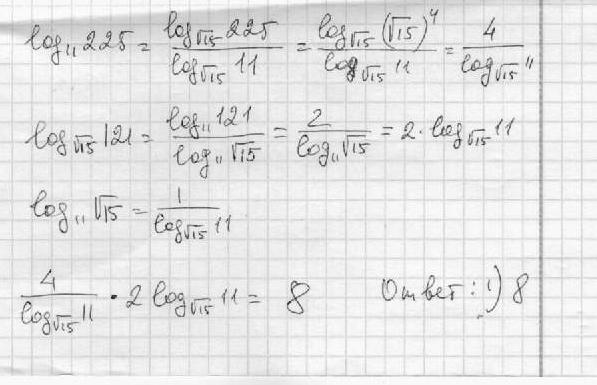 log₁₁ 225 = log_√15 225 / log_√15 11 = log_√15 (√15)⁴ / log_√15 11 = 4 / log_√15 11
log_√15 121 = log₁₁ 121 / log₁₁ √15 = 2 / log₁₁ √15 = 2 · log_√15 11
log₁₁ √15 = 1 / log_√15 11
4 / log_√15 11 · 2 log_√15 11 = 8 Ответ: 1) 8